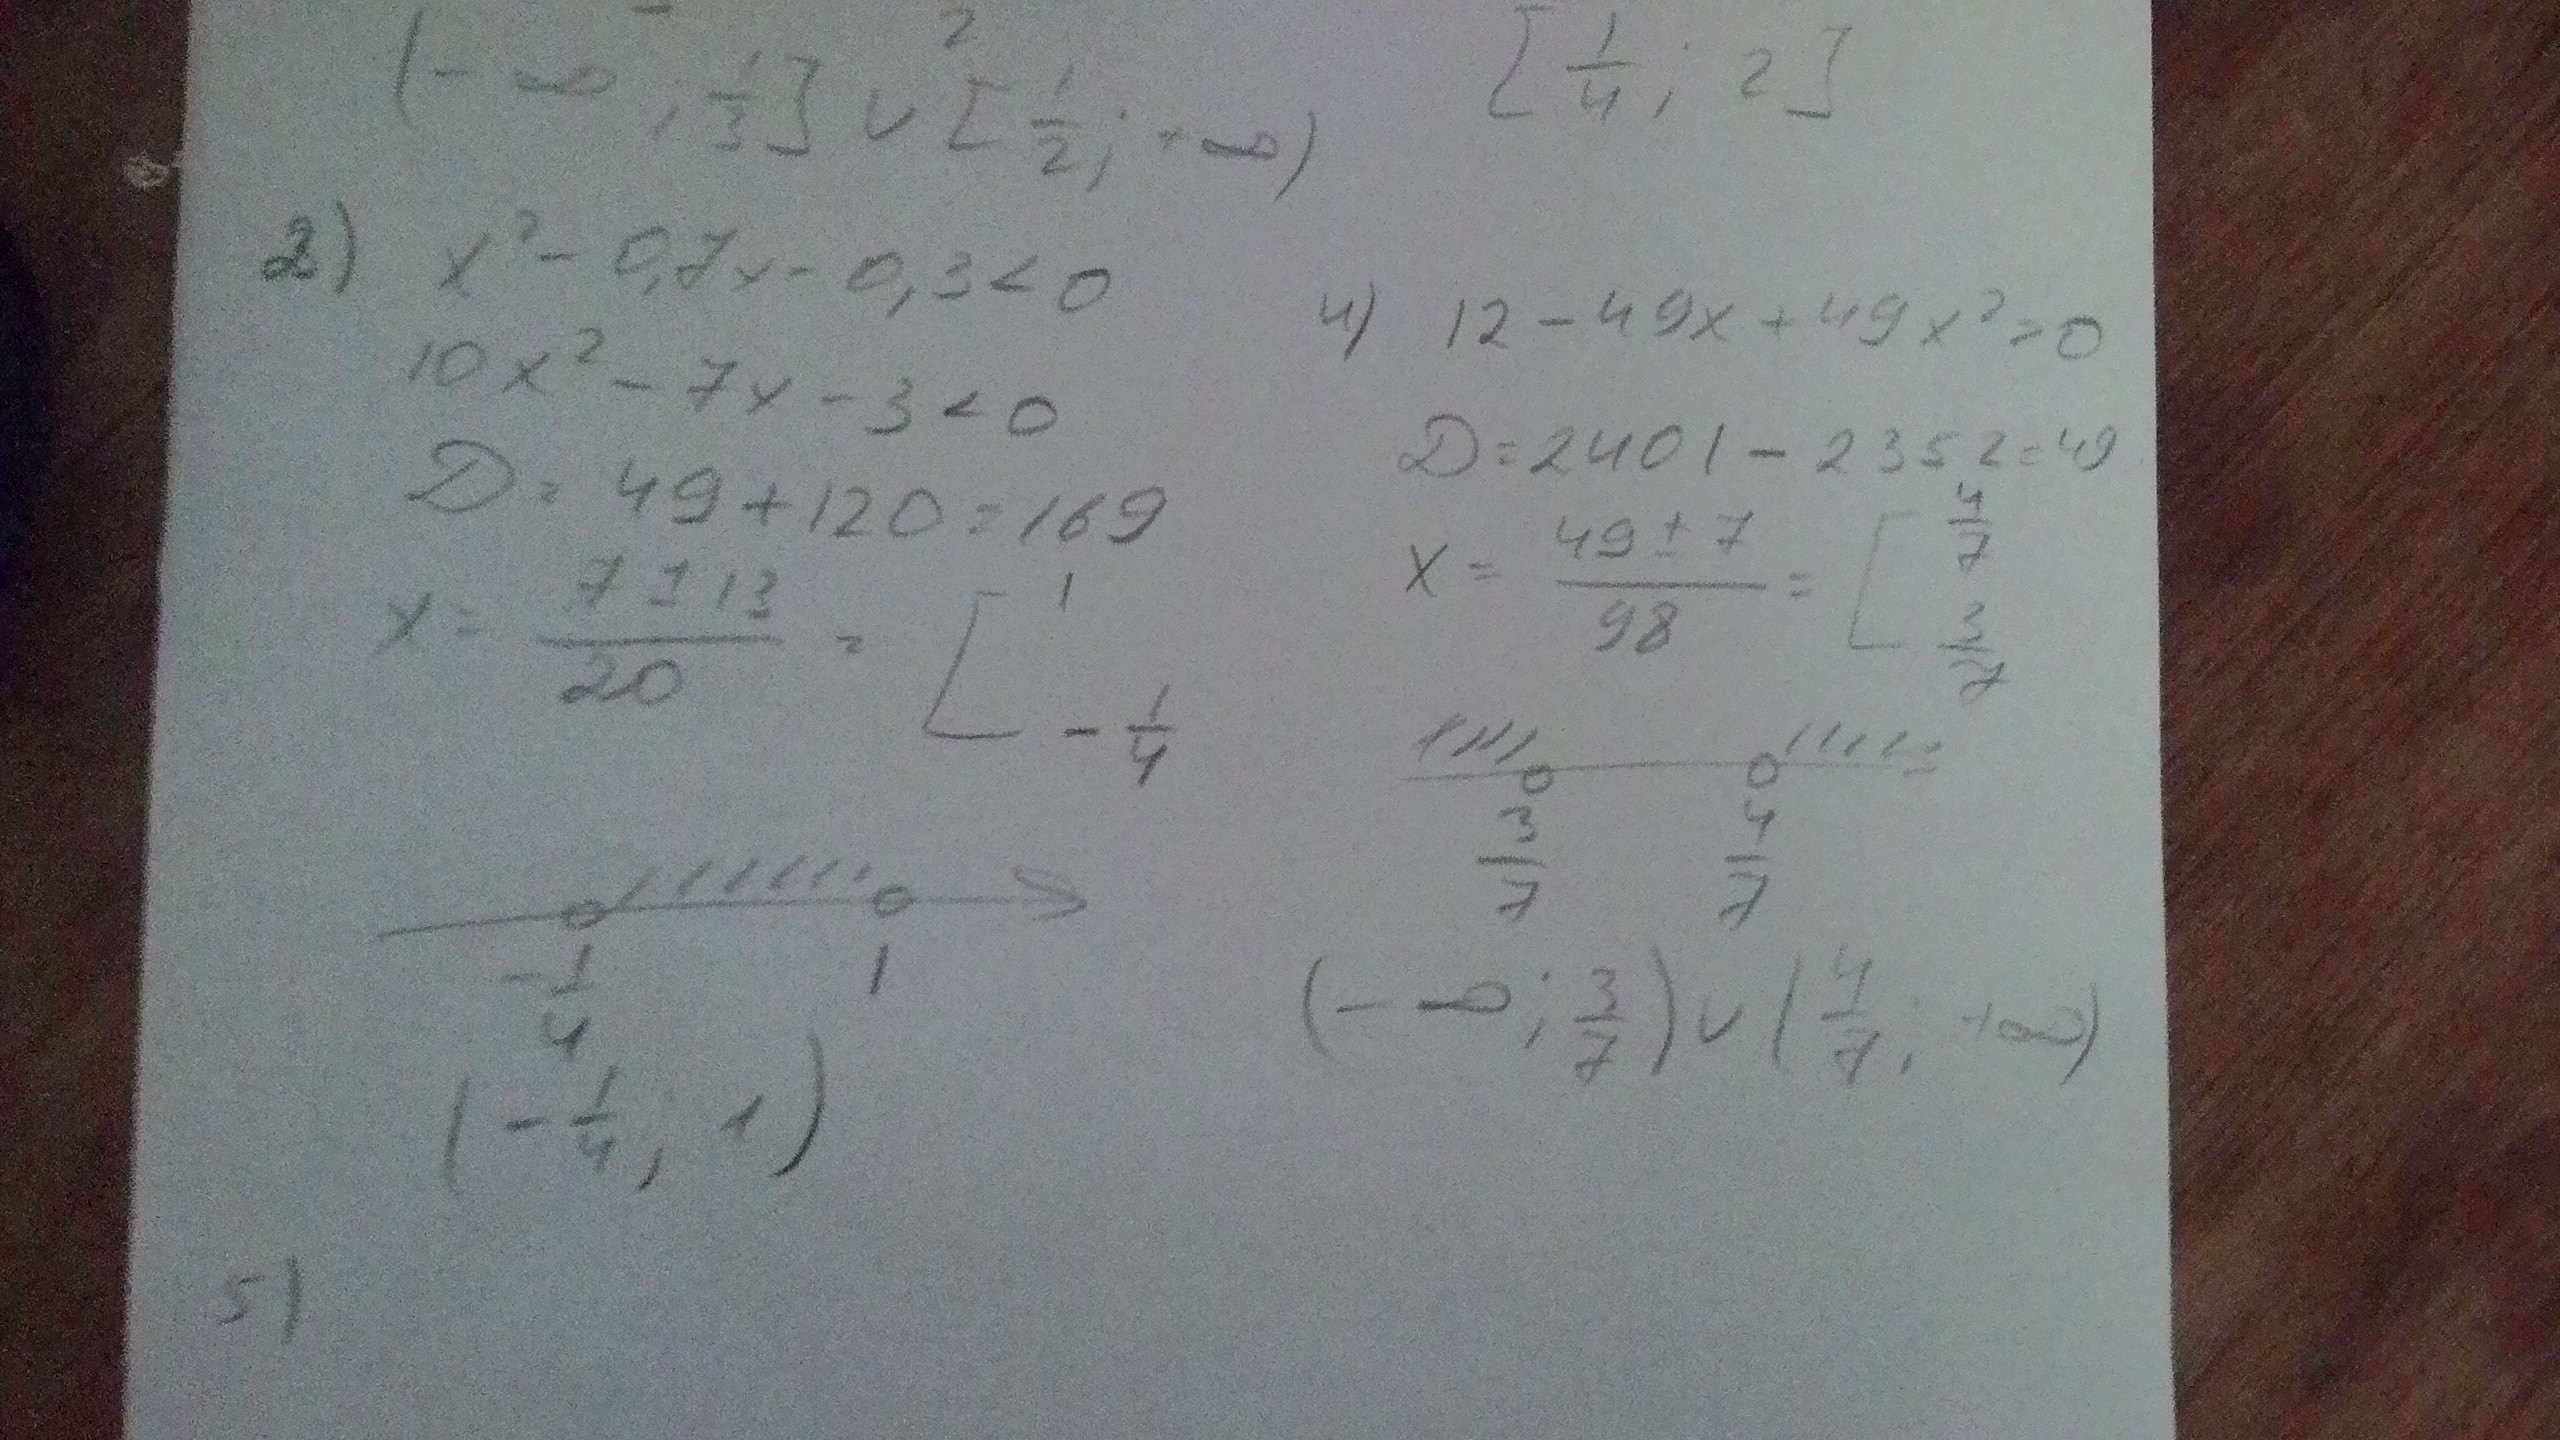 2
(-∞; 1/3] ∪ [1/2; +∞)
[1/4; 2]
2) x² - 0,7x - 0,3 < 0
10x² - 7x - 3 < 0
D = 49 + 120 = 169
x = (7 ± 13)/20 = [ 1
- 1/4
-1/4 1
(-1/4; 1)
4) 12 - 49x + 49x² > 0
D = 2401 - 2352 = 49
x = (49 ± 7)/98 = [ 4/7
3/7
3/7 4/7
(-∞; 3/7) ∪ (4/7; +∞)
5)